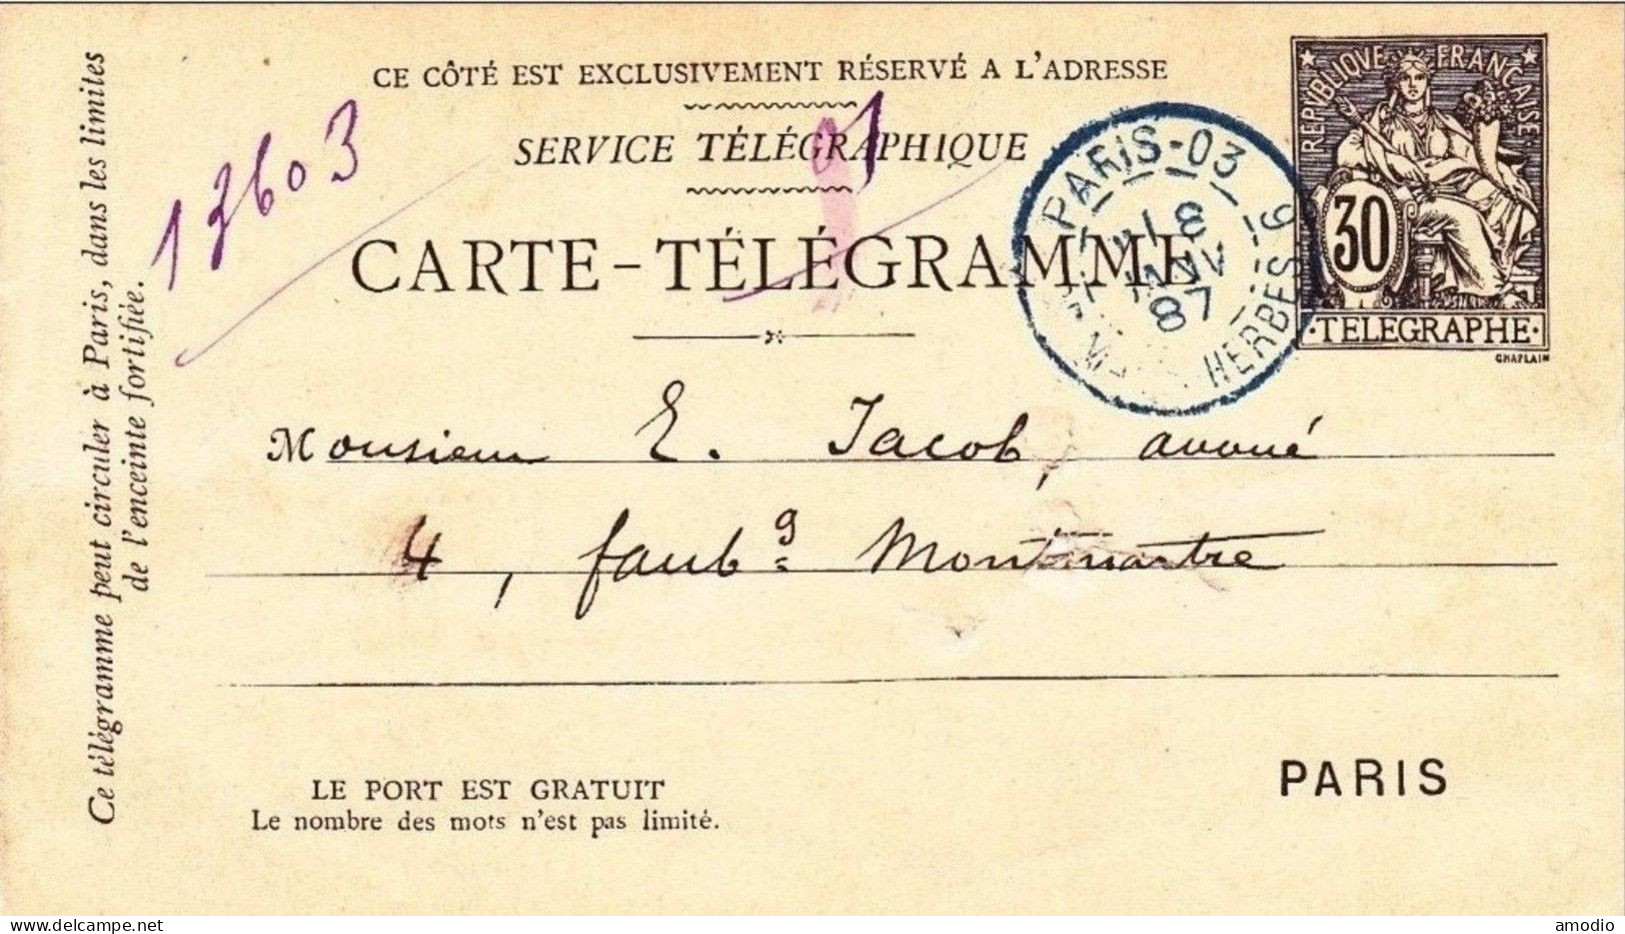 CE CÔTÉ EST EXCLUSIVEMENT RÉSERVÉ A L'ADRESSE
SERVICE TÉLÉGRAPHIQUE
CARTE-TÉLÉGRAMME
13603
01
PARIS-03
8
JANV
87
HERBES
REPVBLIQVE FRANÇAISE
30
·TELEGRAPHE·
CHAPLAIN
Monsieur E. Jacob, avoué
4, faubg Montmartre
PARIS
LE PORT EST GRATUIT
Le nombre des mots n'est pas limité.
Ce télégramme peut circuler à Paris, dans les limites
de l'enceinte fortifiée.
delcampe.net
amodio